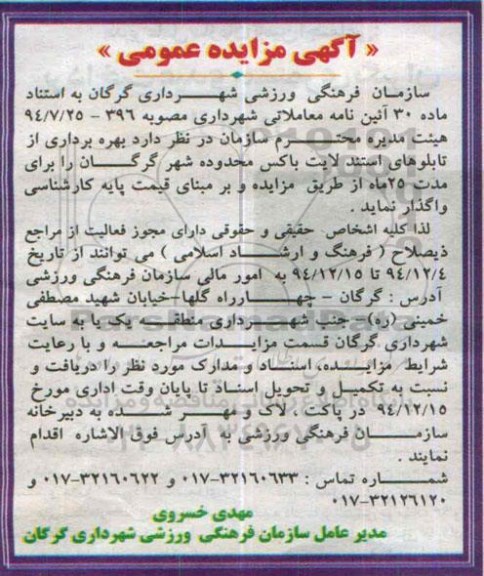 « آگهی مزایده عمومی »
سازمان فرهنگی ورزشی شهرداری گرگان به استناد
ماده ۳۰ آئین نامه معاملاتی شهرداری مصوبه ۳۹۶ - ۹۴/۷/۲۵
هیئت مدیره محترم سازمان در نظر دارد بهره برداری از
تابلوهای استند لایت باکس محدوده شهر گرگان را برای
مدت ۲۵ماه از طریق مزایده و بر مبنای قیمت پایه کارشناسی
واگذار نماید .
لذا کلیه اشخاص حقیقی و حقوقی دارای مجوز فعالیت از مراجع
ذیصلاح ( فرهنگ و ارشاد اسلامی ) می توانند از تاریخ
۹۴/۱۲/۴ تا ۹۴/۱۲/۱۵ به امور مالی سازمان فرهنگی ورزشی
آدرس : گرگان - چهارراه گلها-خیابان شهید مصطفی
خمینی (ره)- جنب شهرداری منطقه یک یا به سایت
شهرداری گرگان قسمت مزایدات مراجعه و با رعایت
شرایط مزایده، اسناد و مدارک مورد نظر را دریافت و
نسبت به تکمیل و تحویل اسناد تا پایان وقت اداری مورخ
۹۴/۱۲/۱۵ در پاکت ، لاک و مهر شده به دبیرخانه
سازمان فرهنگی ورزشی به آدرس فوق الاشاره اقدام
نمایند .
شماره تماس : ۳۲۱۶۰۶۳۳-۰۱۷ و ۳۲۱۶۰۶۲۲-۰۱۷
و ۳۲۱۲۶۱۲۰-۰۱۷
مهدی خسروی
مدیر عامل سازمان فرهنگی ورزشی شهرداری گرگان